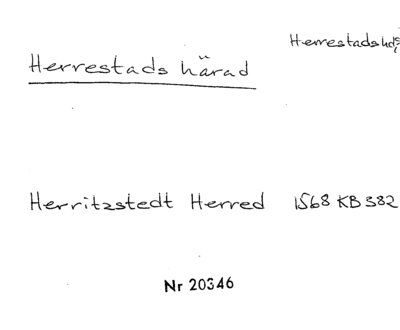 Herrestads hd,
Herrestads härad
Herritzstedt Herred 1568 KB 382
Nr 20346